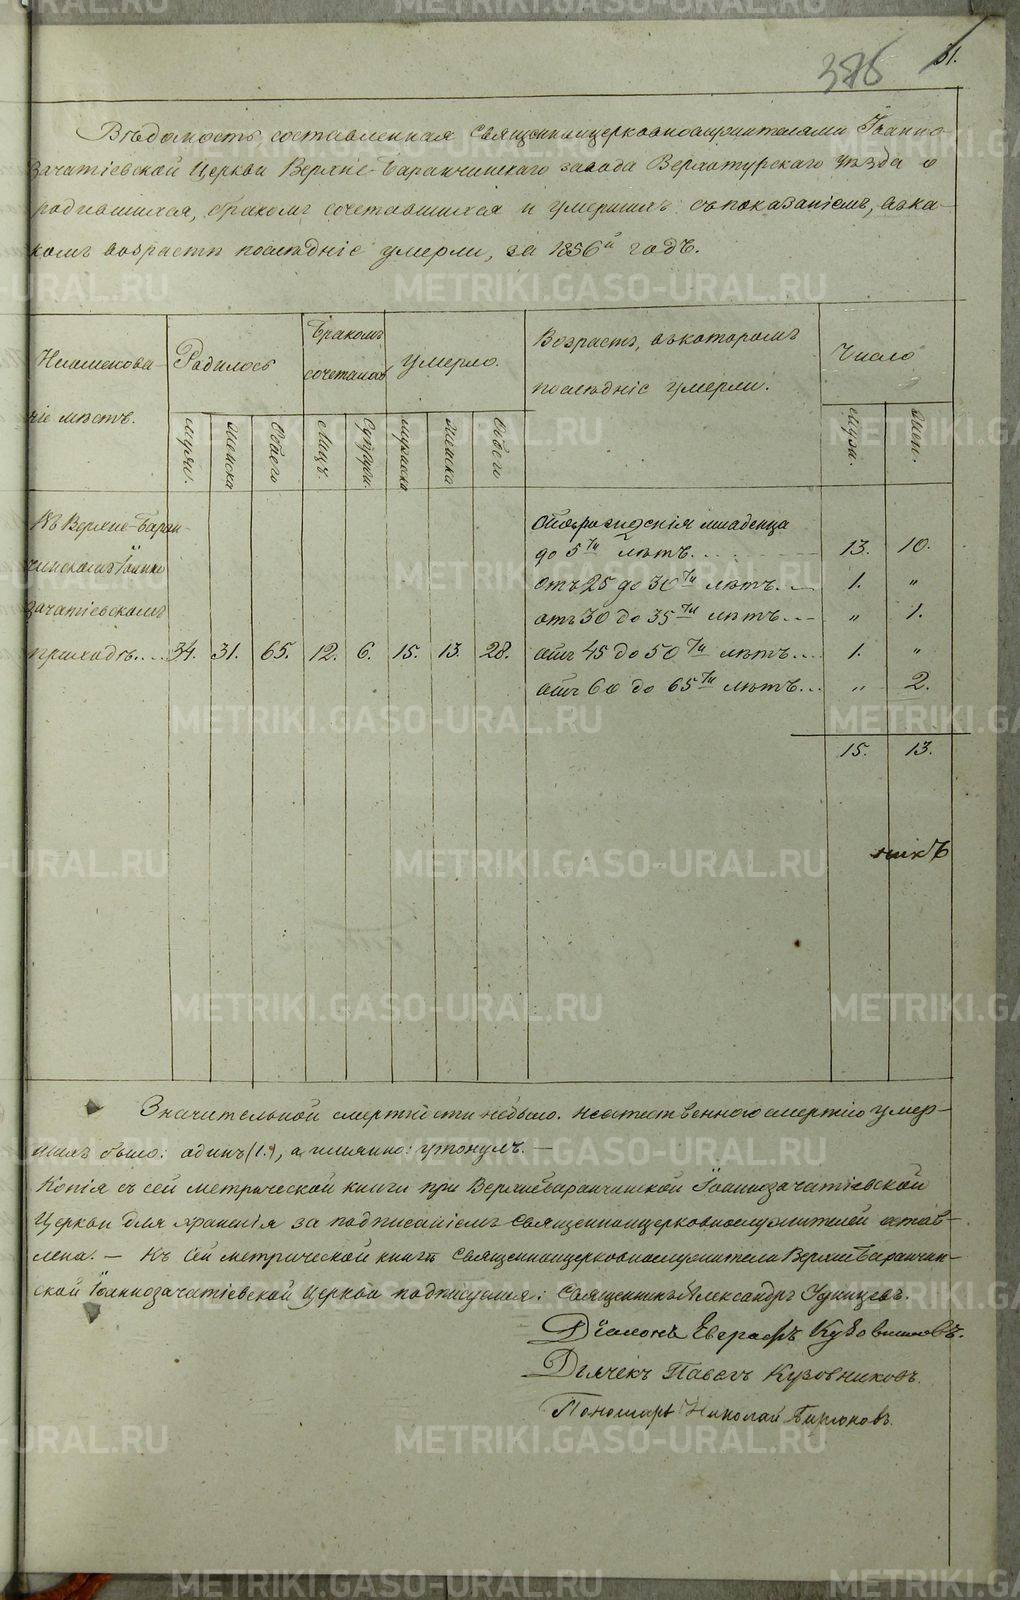 METRIKI.GASO-URAL.RU
31.
Вѣдомость, составленная Священноцерковнослужителями Іоанно-
зачатіевской Церкви Верхне-Баранчинскаго завода Верхотурскаго уѣзда о
родившихся, бракомъ сочетавшихся и умершихъ съ показаніемъ, въ ка-
комъ возрастѣ послѣдніе умерли, за 1856й годъ.
Наименова-
ніе мѣстъ.
Родилось
Бракомъ
сочеталось
умерло.
Возрастъ, въ которомъ
послѣдніе умерли.
Число
мужи.
женска
Обоего
Лицъ.
Супруж.
мужска
женска
Обоего
Мужи.
Жен.
Въ Верхне-Баран-
чинскомъ Іоанно
зачатіевскомъ
приходѣ... 34. 31. 65. 12. 6. 15. 13. 28.
Отъ рожденія младенца
до 5ти лѣтъ. 13. 10.
отъ 25 до 30ти лѣтъ. 1. "
отъ 30 до 35ти лѣтъ. " 1.
отъ 45 до 50ти лѣтъ. 1. "
отъ 60 до 65ти лѣтъ. " 2.
15. 13.
никъ
Значительной смертности небыло. неестественною смертію умер-
шихъ было: одинъ (1.), а имянно: утонулъ. —
Копія съ сей метрической книги при Верхнебаранчинской Іоаннозачатіевской
Церкви для храненія за подписаніемъ Священноцерковнослужителей остав-
лена. — Къ сей метрической книгѣ Священноцерковнослужители Верхнебаранчин-
ской Іоаннозачатіевской Церкви подписуемся: Священникъ Александръ
Діаконъ Евграфъ Кузовниковъ.
Дьячекъ Павелъ Кузовниковъ.
Пономарь Николай Бирюковъ.